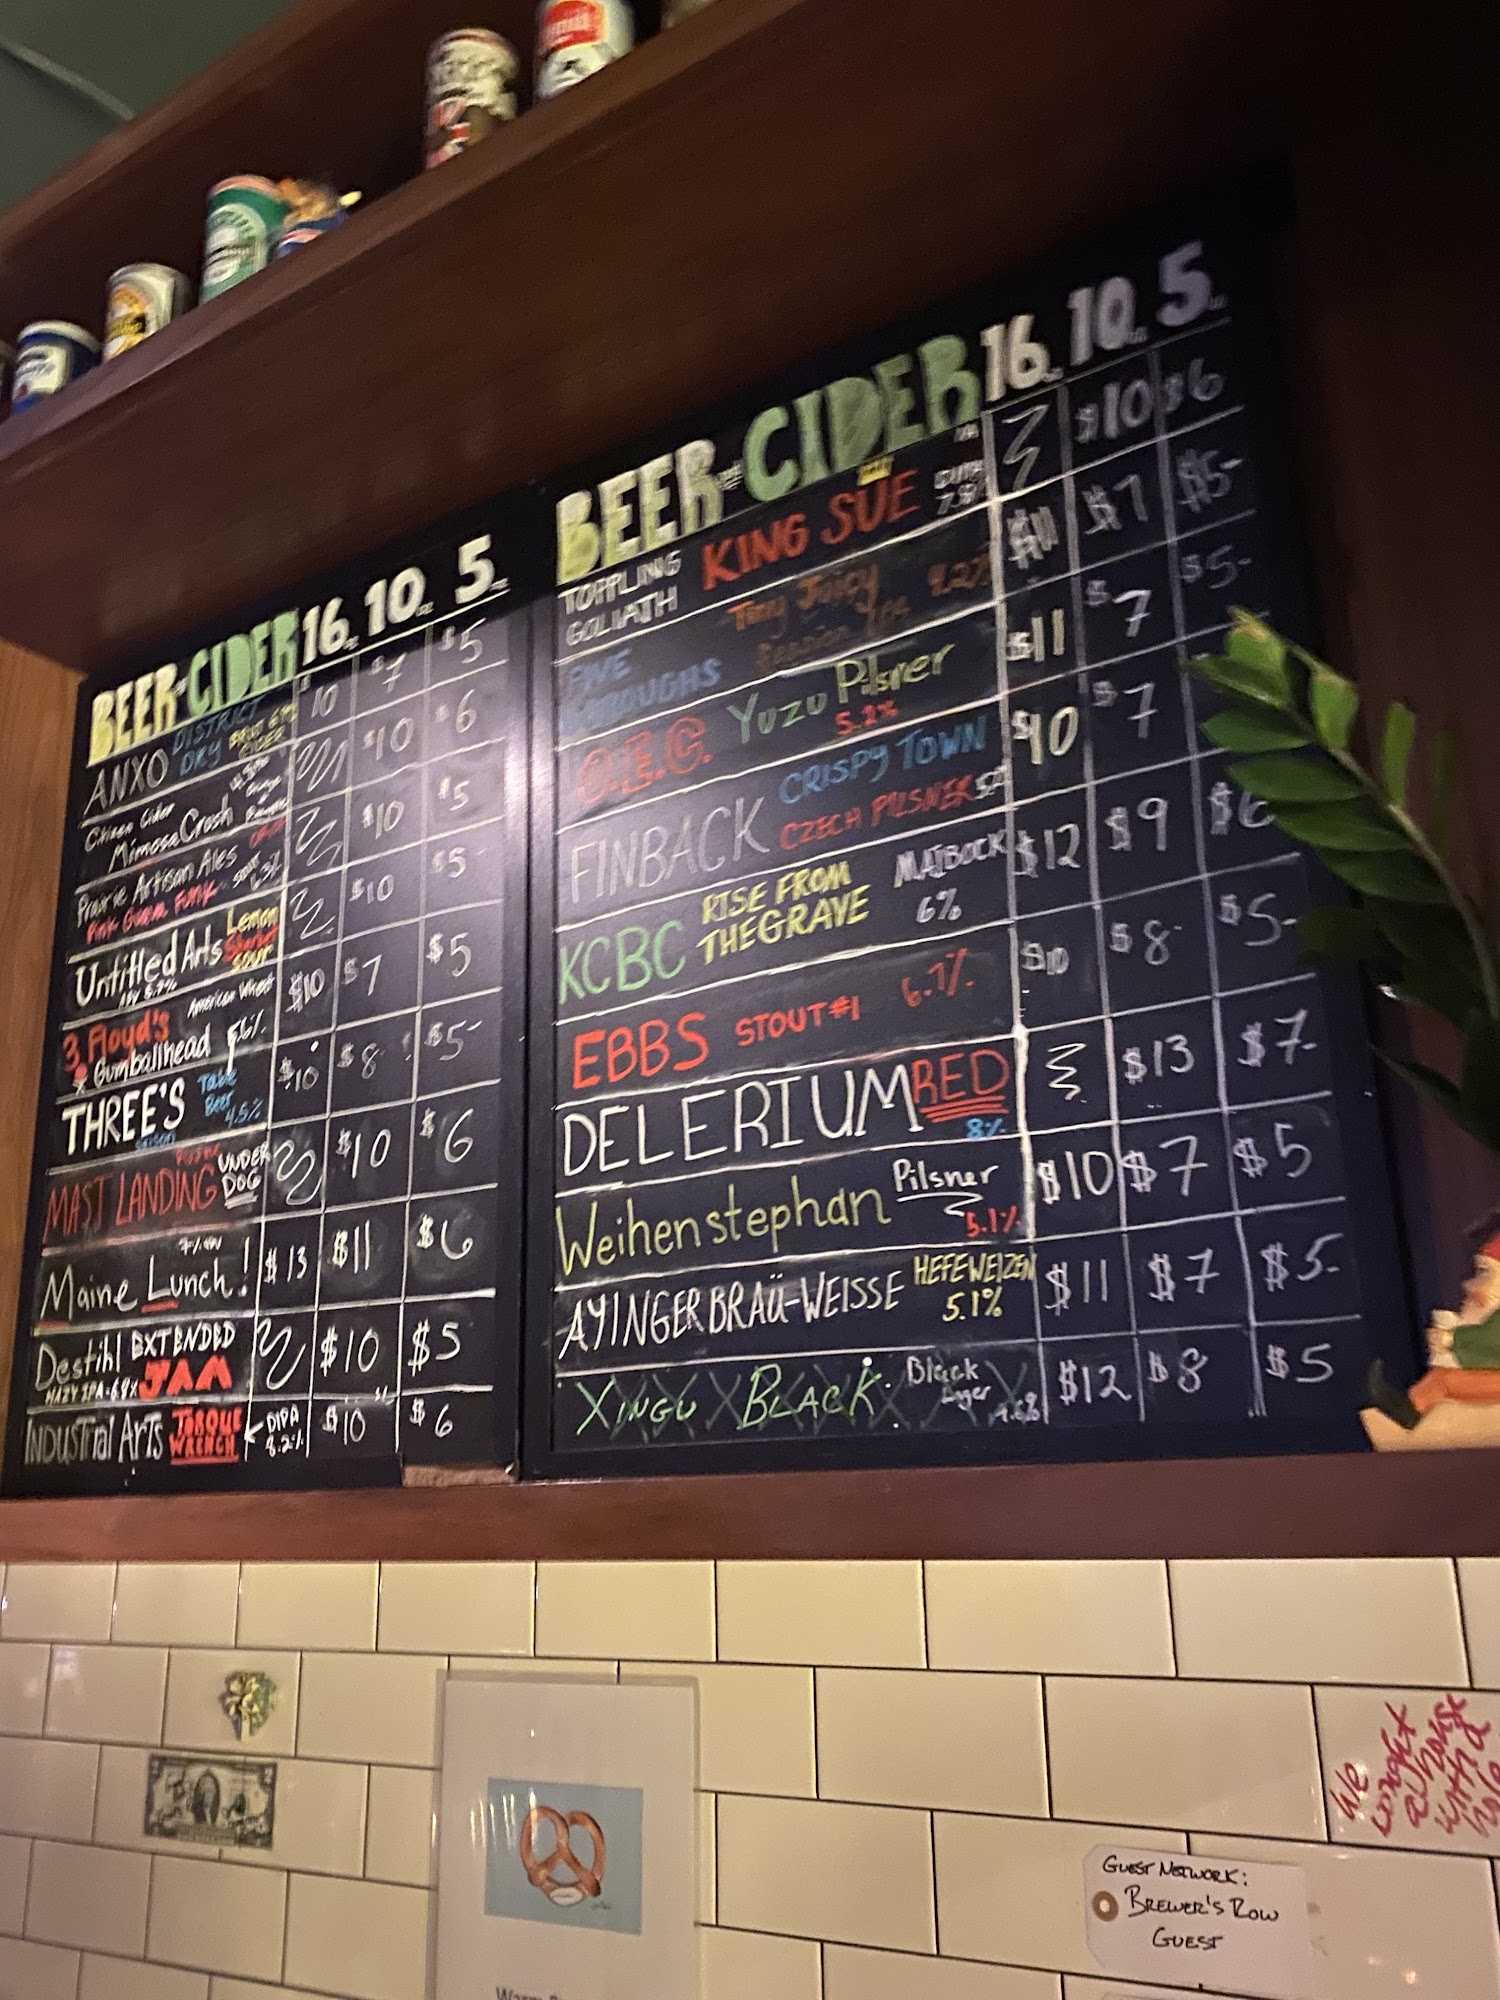 BEER CIDER 16 10 5
ANXO DISTRICT DRY CIDER $10 $7 $5
Citizen Cider
Mimosa Crush $10 $6
Prairie Artisan Ales
Pink Guava Funk SOUR $10 $5
Untitled Arts Lemon SOUR $10 $5-
3 Floyd's American Wheat
Gumballhead 5.6% $10 $7 $5
THREE'S Table Beer 4.5% $10 $8 $5-
MAST LANDING UNDER DOG $10 $6
Maine Lunch! $13 $11 $6
Destihl EXTENDED
HAZY IPA - 6.8% JAM $10 $5
INDUSTRIAL ARTS TORQUE WRENCH DIPA 8.2% $10 $6
BEER CIDER 16 10 5
TOPPLING GOLIATH KING SUE $10 $6
FIVE BOROUGHS Tiny Juicy Session $11 $7 $5-
O.E.C. YUZU Pilsner 5.2% $11 $7 $5-
FINBACK CRISPY TOWN
CZECH PILSNER $10 $7
KCBC RISE FROM THE GRAVE MAIBOCK 6% $12 $9 $6
EBBS STOUT #1 6.7% $10 $8 $5-
DELERIUM RED 8% $13 $7-
Weihenstephan Pilsner 5.1% $10 $7 $5
AYINGER BRAÜ-WEISSE HEFEWEIZEN 5.1% $11 $7 $5-
XINGU BLACK Black Lager 4.6% $12 $8 $5
We
bought
a house
with a
GUEST NETWORK:
BREWER'S ROW
GUEST